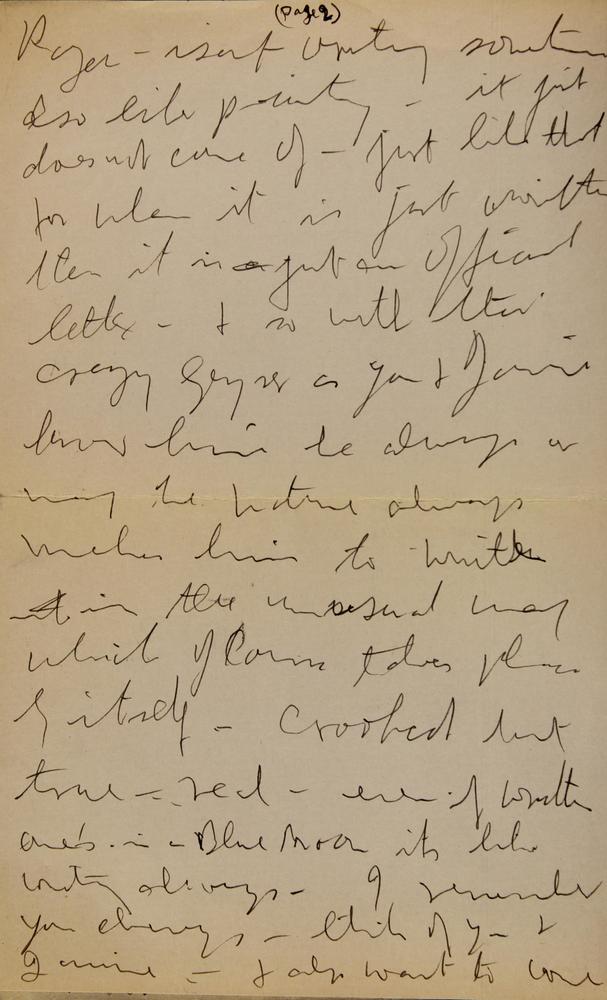 (page 2)
Roger - isent writing
also like painting - it just
does not come of - just like that
for when it is just
then it is just an Official
letter - & so with this
crazy Geyser as you & Jamie
know him he always
may the picture always
makes him to write
in the unusual way
which of course takes place
by itself - Crooked but
true - real - even if
one's in a Blue Moon its like
writing always - I remember
you always - think of you &
Jamie - & also want to come